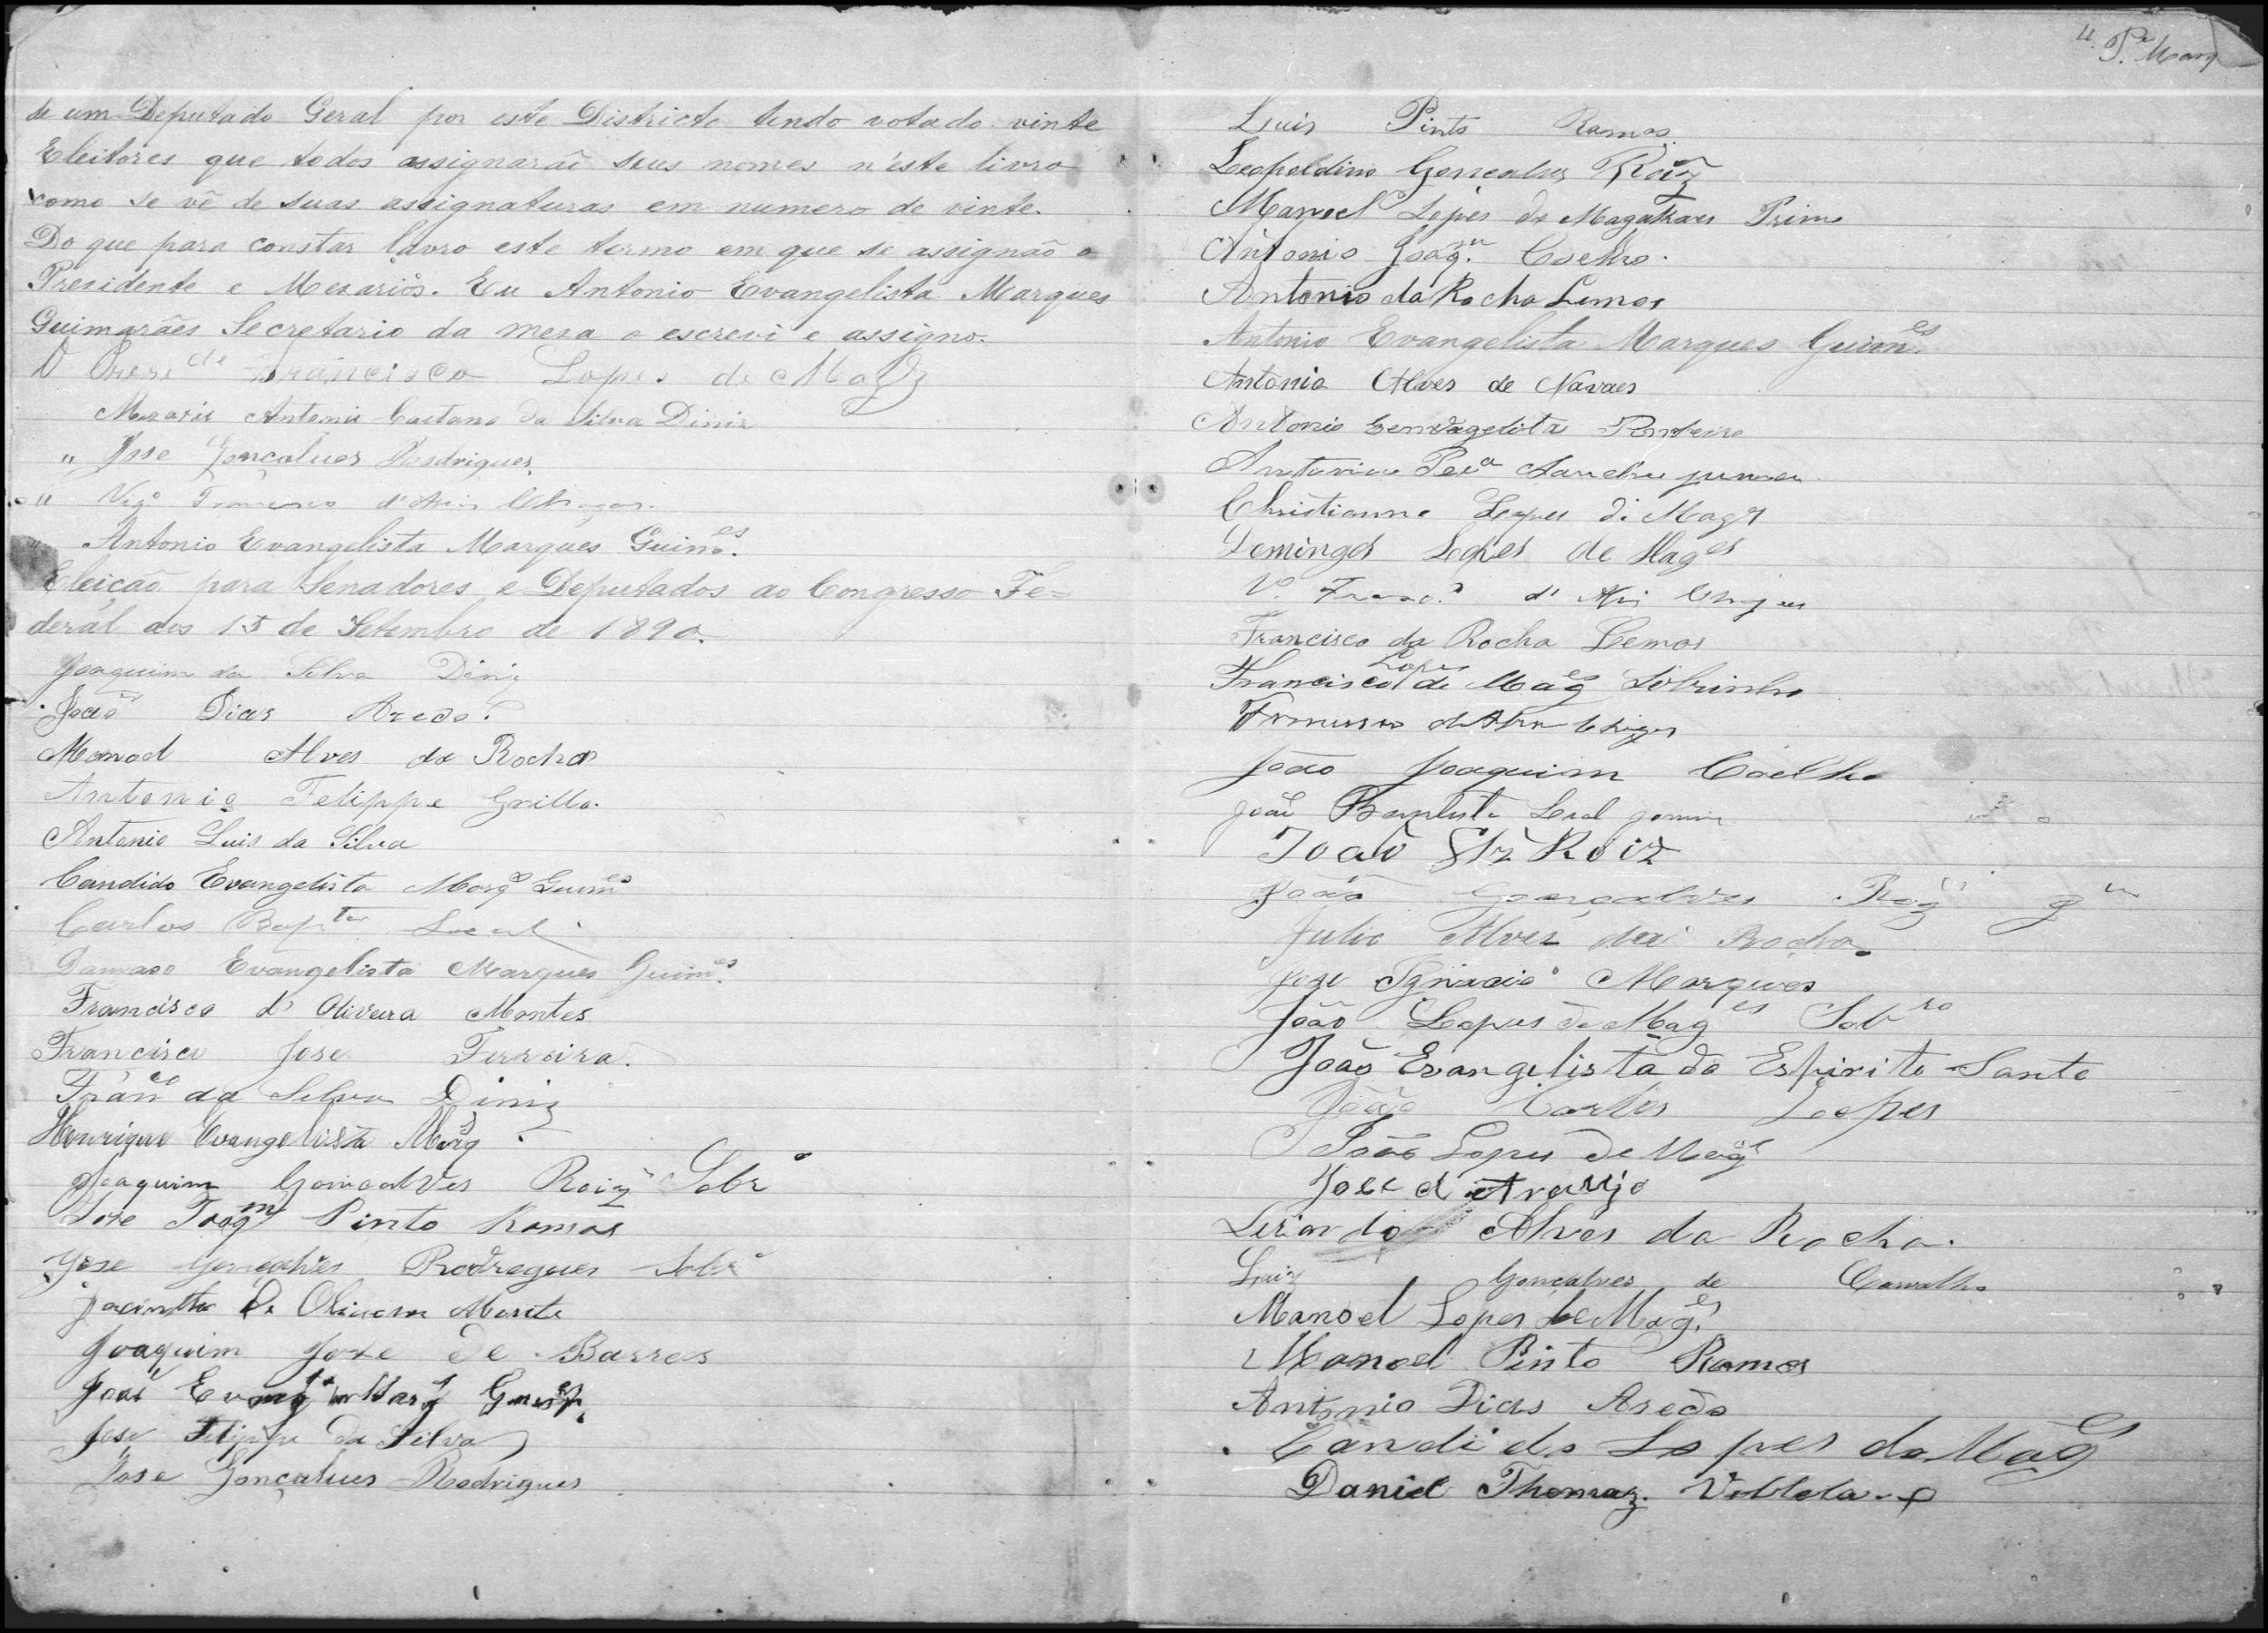 de um Deputado Geral por este Districto tendo votado vinte
Eleitores que todos assignarão seus nomes n'este livro
como se vê de suas assignaturas em numero de vinte.
Do que para constar lavro este termo em que se assignão o
Presidente e Mesarios. Eu Antonio Evangelista Marques
Guimarães Secretario da mesa o escrevi e assigno.
O Preside Francisco Lopes de Magz
Mesario Antonio Caetano da Silva Diniz
" Jose Gonçalves Rodrigues
" Vigo Francisco d'Assis Chagas.
" Antonio Evangelista Marques Guimes.
Eleição para Senadores e Deputados ao Congresso Fe=
deral aos 15 de Setembro de 1890.
Joaquim da Silva Diniz
João Dias Aredo.
Manoel Alves da Rocha
Antonio Felippe Grillo.
Antonio Luis da Silva
Candido Evangelista Marqs Guimes
Carlos Bapta Leal
Damaso Evangelista Marques Guimes.
Francisco d' Oliveira Montes
Francisco Jose Ferreira.
Franco da Silva Diniz
Henrique Evangelista Marqs.
Joaquim Goncalves Roiz Sobro
Jose Joaqm Pinto Ramos
Jose Gonçalves Rodrigues Sobro
Jacintho de Oliveira Monte
Joaquim Jose de Barros
João Evangta Marqs Guimes
Jose Felippe da Silva
Jose Gonçalves Rodrigues
4. P. Marq
Luis Pinto Ramos
Leopoldino Gonçalves Roiz
Manoel Lopes de Magalhaes Primo
Antonio Joaqm. Coelho.
Antonio da Rocha Lemos
Antonio Evangelista Marques Guimes.
Antonio Alves de Navaes
Antonio Pera
Christianno Lopes de Mags
Domingos Lopes de Mages
Vo. Franco. d' Assis Chagas
Francisco da Rocha Lemos
Francisco Lopes de Mages Sobrinho
Francisco de Assis Chagas
João Joaquim Coelho
João Baptista Leal
João Roiz
João Gonçalves
Julio Alves da Rocha
Jose Ignacio Marques
João Lopes de Mages Sobro
João Evangelista do Espirito Santo
João Carlos Lopes
João Lopes de Mags
Jose d'Araujo
Alves da Rocha.
Luiz Gonçalves de Carvalho
Manoel Lopes de Mages.
Manoel Pinto Ramos
Antonio Dias Aredo
Candido Lopes de Mages
Daniel Thomaz Villela